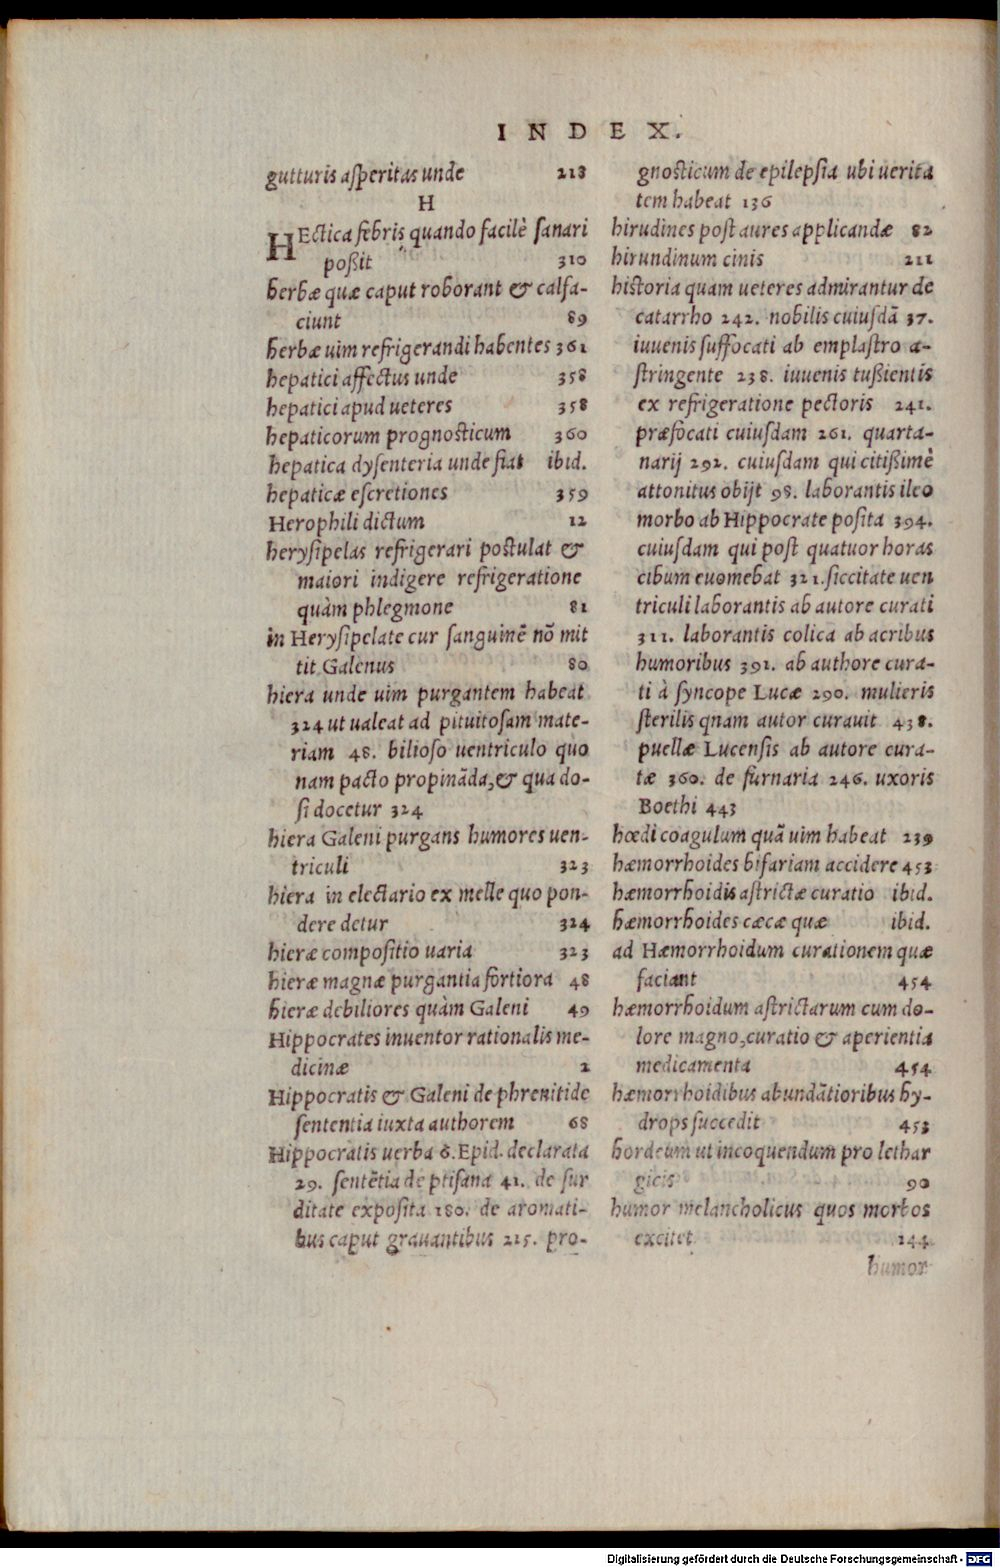 INDEX.
gutturis asperitas unde 218
H
HEctica febris quando facilè sanari
poßit 310
herbæ quæ caput roborant & calfa-
ciunt 89
herbæ uim refrigerandi habentes 361
hepatici affectus unde 358
hepatici apud ueteres 358
hepaticorum prognosticum 360
hepatica dysenteria unde fiat ibid.
hepaticæ escretiones 359
Herophili dictum 12
herysipelas refrigerari postulat &
maiori indigere refrigeratione
quàm phlegmone 81
in Herysipelate cur sanguinē nō mit
tit Galenus 80
hiera unde uim purgantem habeat
324 ut ualeat ad pituitosam mate-
riam 48. bilioso uentriculo quo
nam pacto propināda, & qua do-
si docetur 324
hiera Galeni purgans humores uen-
triculi 323
hiera in electario ex melle quo pon-
dere detur 324
hieræ compositio uaria 323
hieræ magnæ purgantia fortiora 48
hieræ debiliores quàm Galeni 49
Hippocrates inuentor rationalis me-
dicinæ 2
Hippocratis & Galeni de phrenitide
sententia iuxta authorem 68
Hippocratis uerba 6. Epid. declarata
29. sentētia de ptisana 41. de sur
ditate exposita 180. de aromati-
bus caput grauantibus 215. pro-
gnosticum de epilepsia ubi uerita
tem habeat 136
hirudines post aures applicandæ 82
hirundinum cinis 211
historia quam ueteres admirantur de
catarrho 242. nobilis cuiusdā 37.
iuuenis suffocati ab emplastro a-
stringente 238. iuuenis tußientis
ex refrigeratione pectoris 241.
præfocati cuiusdam 261. quarta-
narij 292. cuiusdam qui citißimè
attonitus obijt 98. laborantis ileo
morbo ab Hippocrate posita 394.
cuiusdam qui post quatuor horas
cibum euomebat 321. siccitate uen
triculi laborantis ab autore curati
311. laborantis colica ab acribus
humoribus 391. ab authore cura-
ti à syncope Lucæ 290. mulieris
sterilis qnam autor curauit 438.
puellæ Lucensis ab autore cura-
tæ 360. de furnaria 246. uxoris
Boethi 443
hœdi coagulum quā uim habeat 239
hæmorrhoides bifariam accidere 453
hæmorrhoidis astrictæ curatio ibid.
hæmorrhoides cæcæ quæ ibid.
ad Hæmorrhoidum curationem quæ
faciant 454
hæmorrhoidum astrictarum cum do-
lore magno, curatio & aperientia
medicamenta 454
hæmorrhoidibus abundātioribus hy-
drops succedit 453
hordeum ut incoquendum pro lethar
gicis 90
humor melancholicus quos morbos
excitet 144
humor
Digitalisierung gefördert durch die Deutsche Forschungsgemeinschaft - DFG